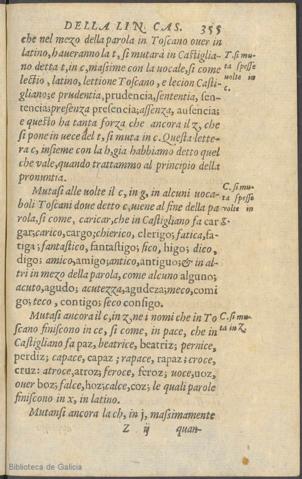 DELLA LIN. CAS. 355
che nel mezo della parola in Toscano ouer in
latino, haueranno la t, si mutarà in Castiglia-
no detta t, in c, massime con la uocale, si come
lectio, latino, lettione Toscano, e lecion Casti-
gliano: e prudentia, prudencia, sententia, sen-
tencia; presenza presencia; assenza, ausencia;
e questo ha tanta forza che ancora il z, che
si pone in uece del t, si muta in c. Questa lette-
ra c, insieme con la h, gia habbiamo detto quel
che vale, quando trattammo al principio della
pronuntia.
T. si mu-
ta spesse
uolte in
c.
Mutasi alle uolte il c, in g, in alcuni uoca-
boli Toscani doue detto c, uiene al fine della pa
rola, si come, caricar, che in Castigliano fa car
gar; carico, cargo; chierico, clerigo; fatica, fa-
tiga; fantastico, fantastigo; fico, higo; dico,
digo; amico, amigo; antico, antiguo; & in al-
tri in mezo della parola, come alcuno alguno;
acuto, agudo; acutezza, agudeza; meco, comi
go; teco, contigo; seco consigo.
C. si mu-
ta spesse
volte in
g.
Mutasi ancora il c, in z, ne i nomi che in To
scano finiscono in ce, si come, in pace, che in
Castigliano fa paz, beatrice, beatriz; pernice,
perdiz; capace, capaz; rapace, rapaz; croce,
cruz: atroce, atroz; feroce, feroz; uoce, uoz,
ouer boz; falce, hoz; calce, coz; le quali parole
finiscono in x, in latino.
C. si mu-
ta in Z.
Mutansi ancora la ch, in j, massimamente
Z ij quan-
Biblioteca de Galicia